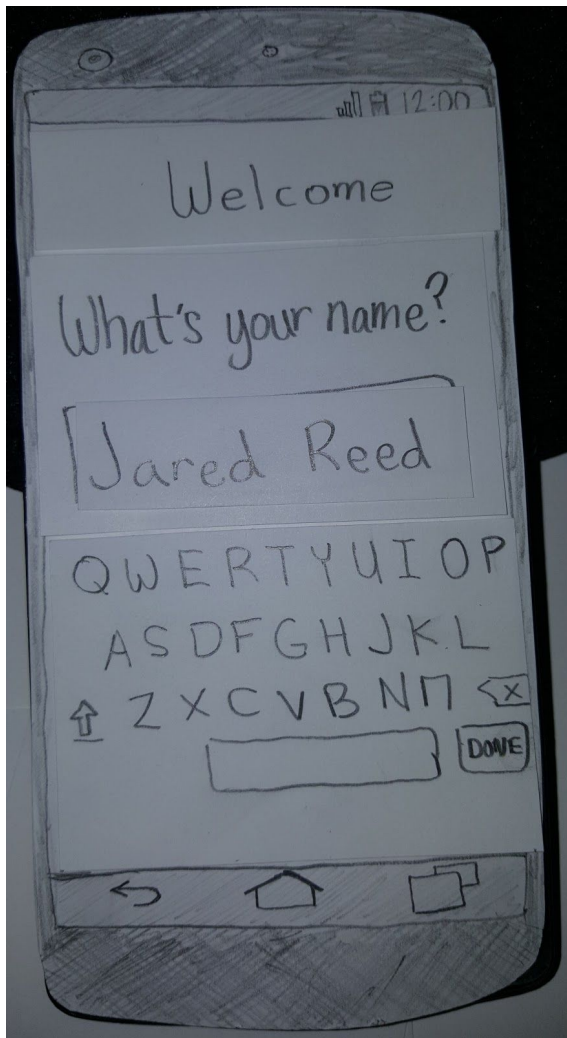 12:00
Welcome
What's your name?
Jared Reed
Q W E R T Y U I O P
A S D F G H J K L
Z X C V B N M
DONE